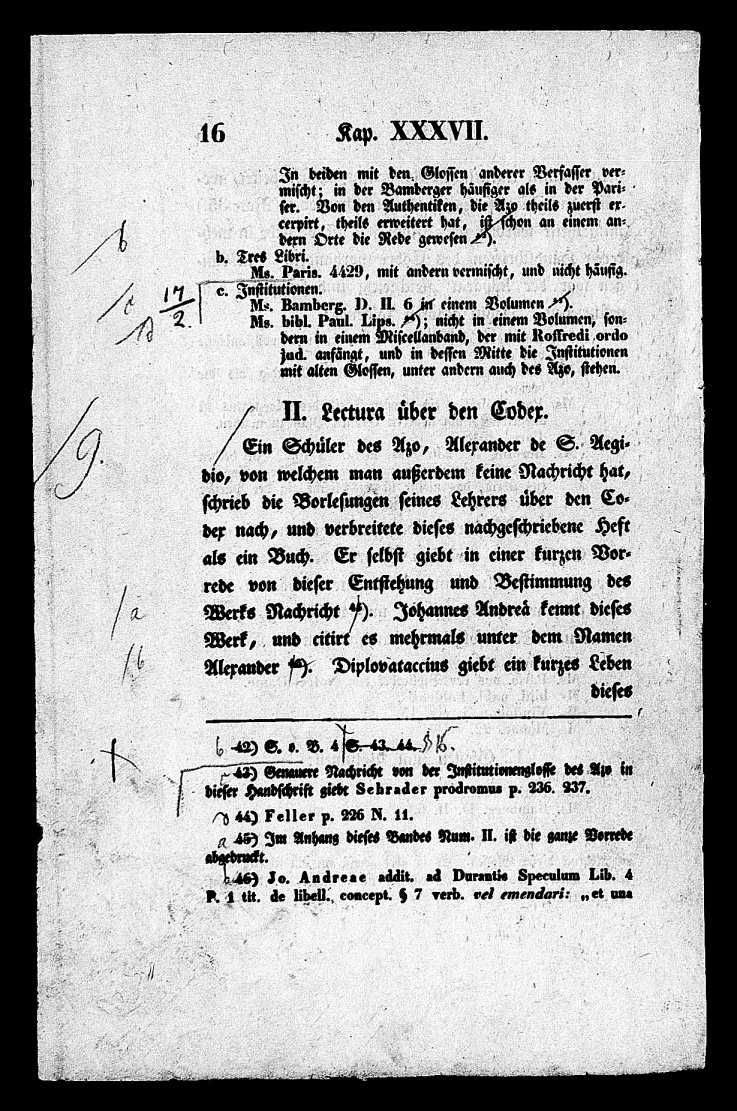 16 Kap. XXXVII.
In beiden mit den Glossen anderer Verfasser ver-
mischt; in der Bamberger häufiger als in der Pari-
ser. Von den Authentiken, die Azo theils zuerst ex-
cerpirt, theils erweitert hat, ist schon an einem an-
dern Orte die Rede gewesen ).
b. Tres Libri.
Ms. Paris. 4429, mit andern vermischt, und nicht häufig.
c. Institutionen.
Ms. Bamberg. D. II. 6 in einem Volumen ).
Ms. bibl. Paul. Lips. ); nicht in einem Volumen, son-
dern in einem Miscellanband, der mit Roffredi ordo
jud. anfängt, und in dessen Mitte die Institutionen
mit alten Glossen, unter andern auch des Azo, stehen.
b
c
17
2.
d
II. Lectura über den Codex.
9.
Ein Schüler des Azo, Alexander de S. Aegi-
dio, von welchem man außerdem keine Nachricht hat,
schrieb die Vorlesungen seines Lehrers über den Co-
dex nach, und verbreitete dieses nachgeschriebene Heft
als ein Buch. Er selbst giebt in einer kurzen Vor-
rede von dieser Entstehung und Bestimmung des
Werks Nachricht 45). Johannes Andreä kennt dieses
Werk, und citirt es mehrmals unter dem Namen
Alexander 46). Diplovataccius giebt ein kurzes Leben
dieses
a
b
b 42) S. o. B. 4 S. 43. 44. § 16.
c 43) Genauere Nachricht von der Institutionenglosse des Azo in
dieser Handschrift giebt Schrader prodromus p. 236. 237.
d 44) Feller p. 226 N. 11.
a 45) Im Anhang dieses Bandes Num. II. ist die ganze Vorrede
abgedruckt.
b 46) Jo. Andreae addit. ad Durantis Speculum Lib. 4
P. 1 tit. de libell. concept. § 7 verb. vel emendari: „et una